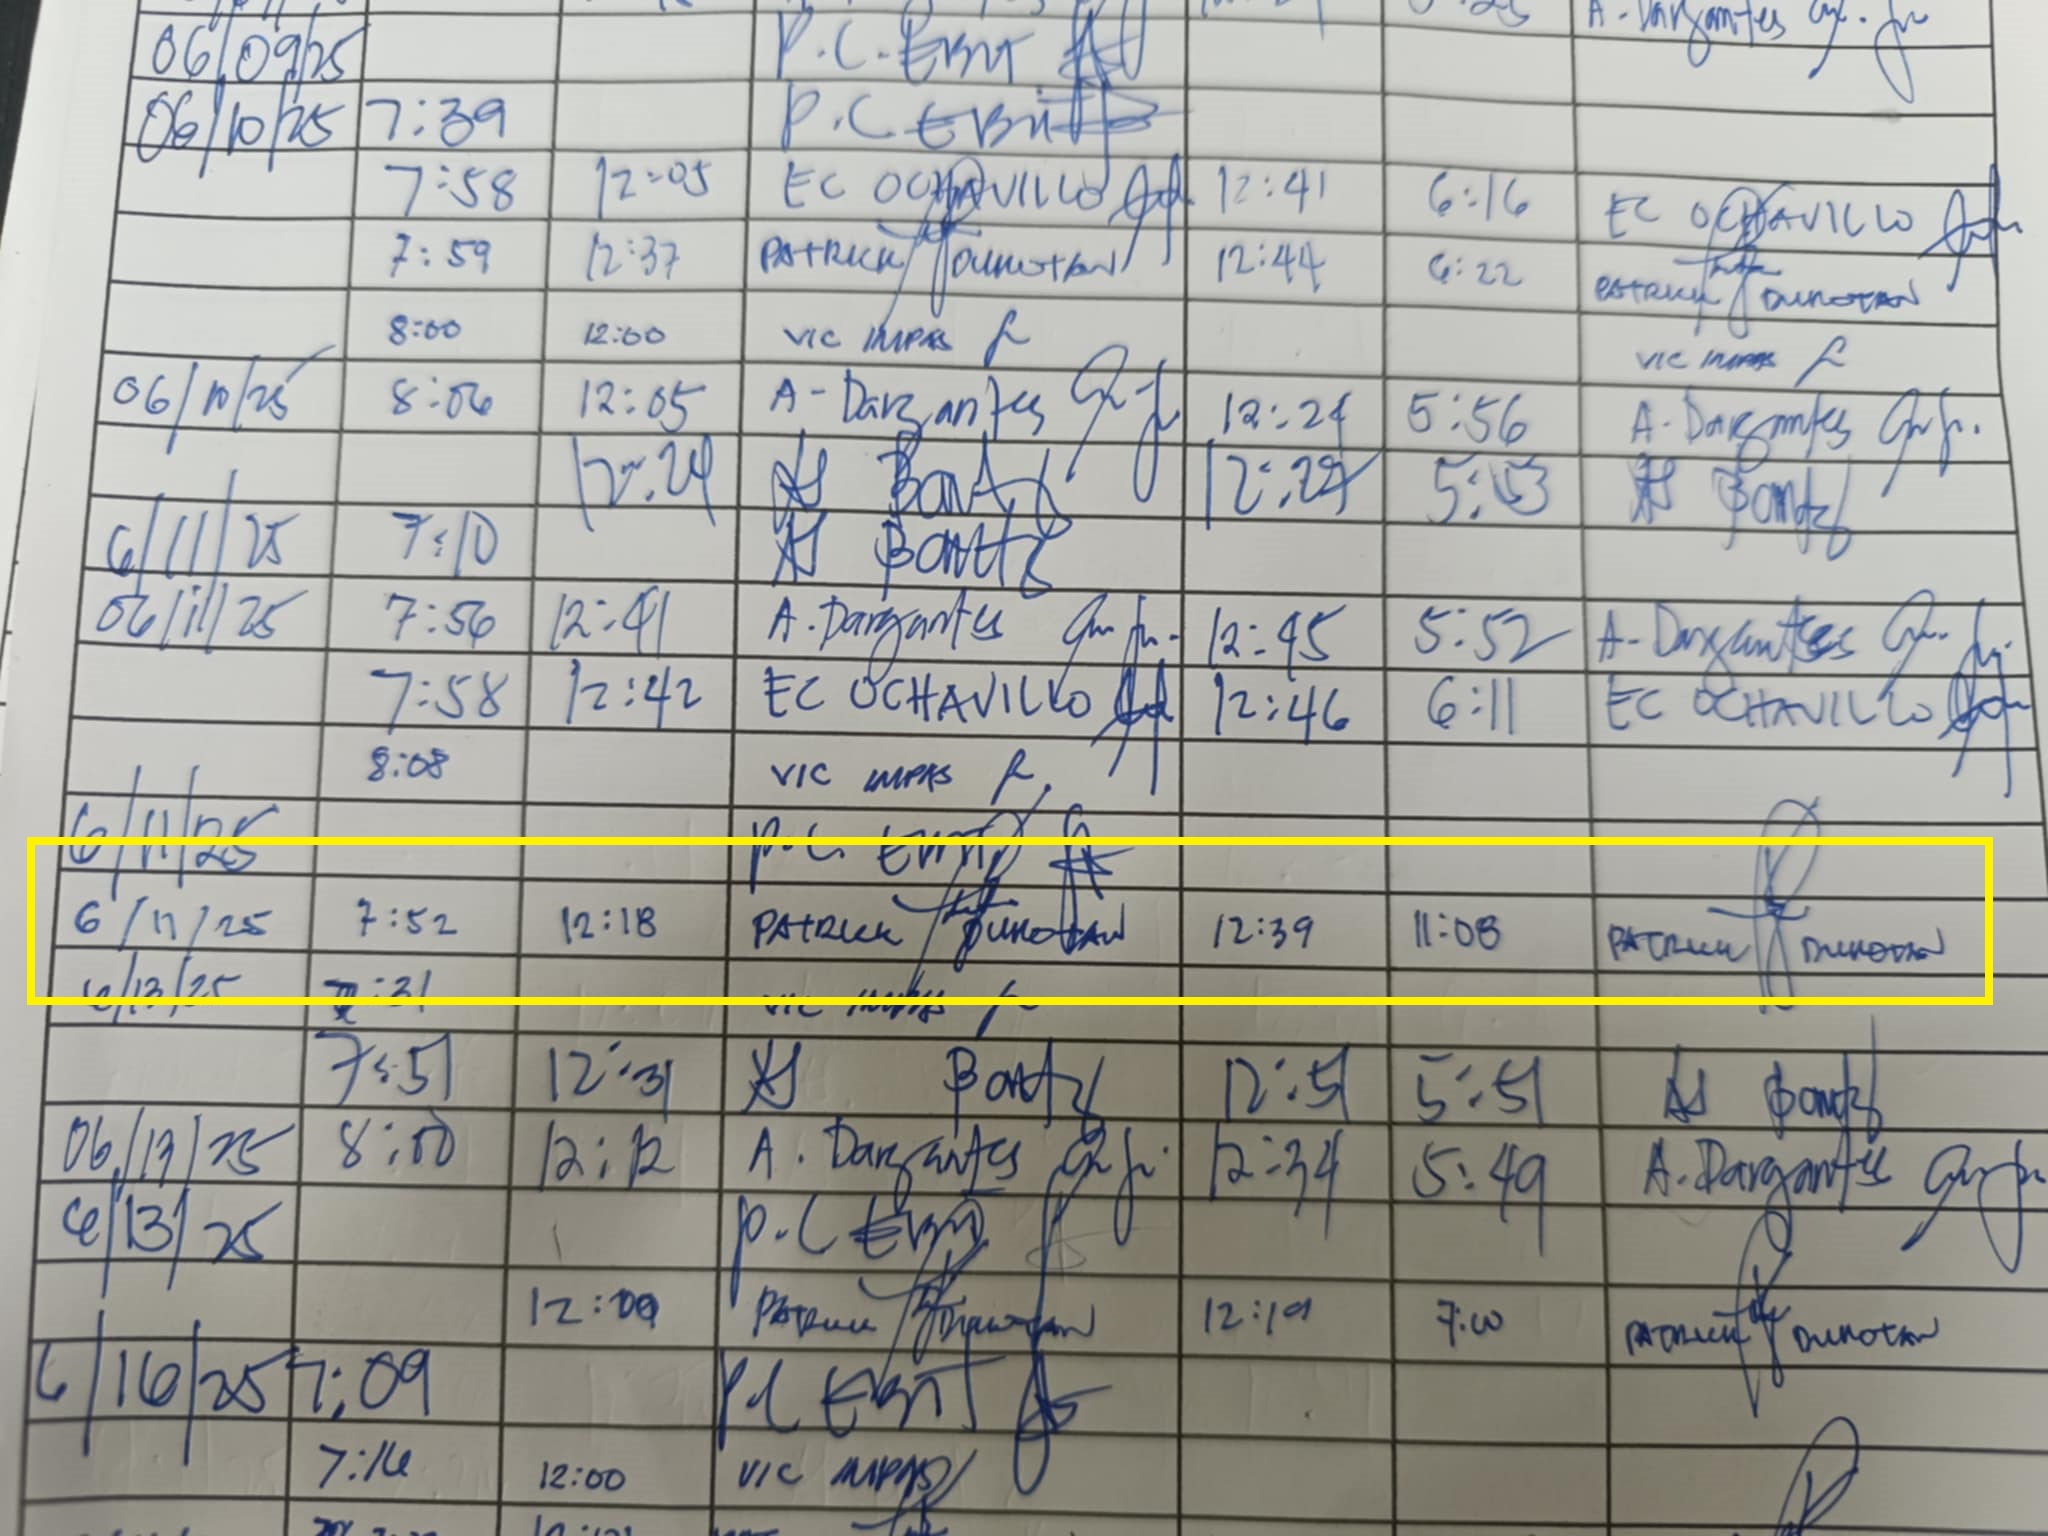 A. Dargantes
06/09/25 P.C. EBIT
06/10/25 7:39 P.C EBIT
7:58 12:05 EC OCHAVILLO 12:41 6:16 EC OCHAVILLO
7:59 12:37 PATRICK DUMOTAN 12:44 6:22 PATRICK DUMOTAN
8:00 12:00 VIC IMPAS VIC IMPAS
06/10/25 8:06 12:05 A-Dargantes 12:24 5:56 A-Dargantes
12:24 12:29 5:53
6/11/25 7:10
06/11/25 7:56 12:41 A.Dargantes 12:45 5:52 A-Dargantes
7:58 12:42 EC OCHAVILLO 12:46 6:11 EC OCHAVILLO
8:08 VIC IMPAS
6/11/25 P.C. EBIT
6/11/25 7:52 12:18 PATRICK DUMOTAN 12:39 11:08 PATRICK DUMOTAN
6/13/25 :31 VIC IMPAS
7:51 12:31 12:51 5:51
06/13/25 8:00 12:12 A. Dargantes 12:34 5:49 A.Dargantes
6/13/25 P.C EBIT
12:09 PATRICK DUMOTAN 12:19 7:00 PATRICK DUMOTAN
6/16/25 7:09 P.C EBIT
7:16 12:00 VIC IMPAS